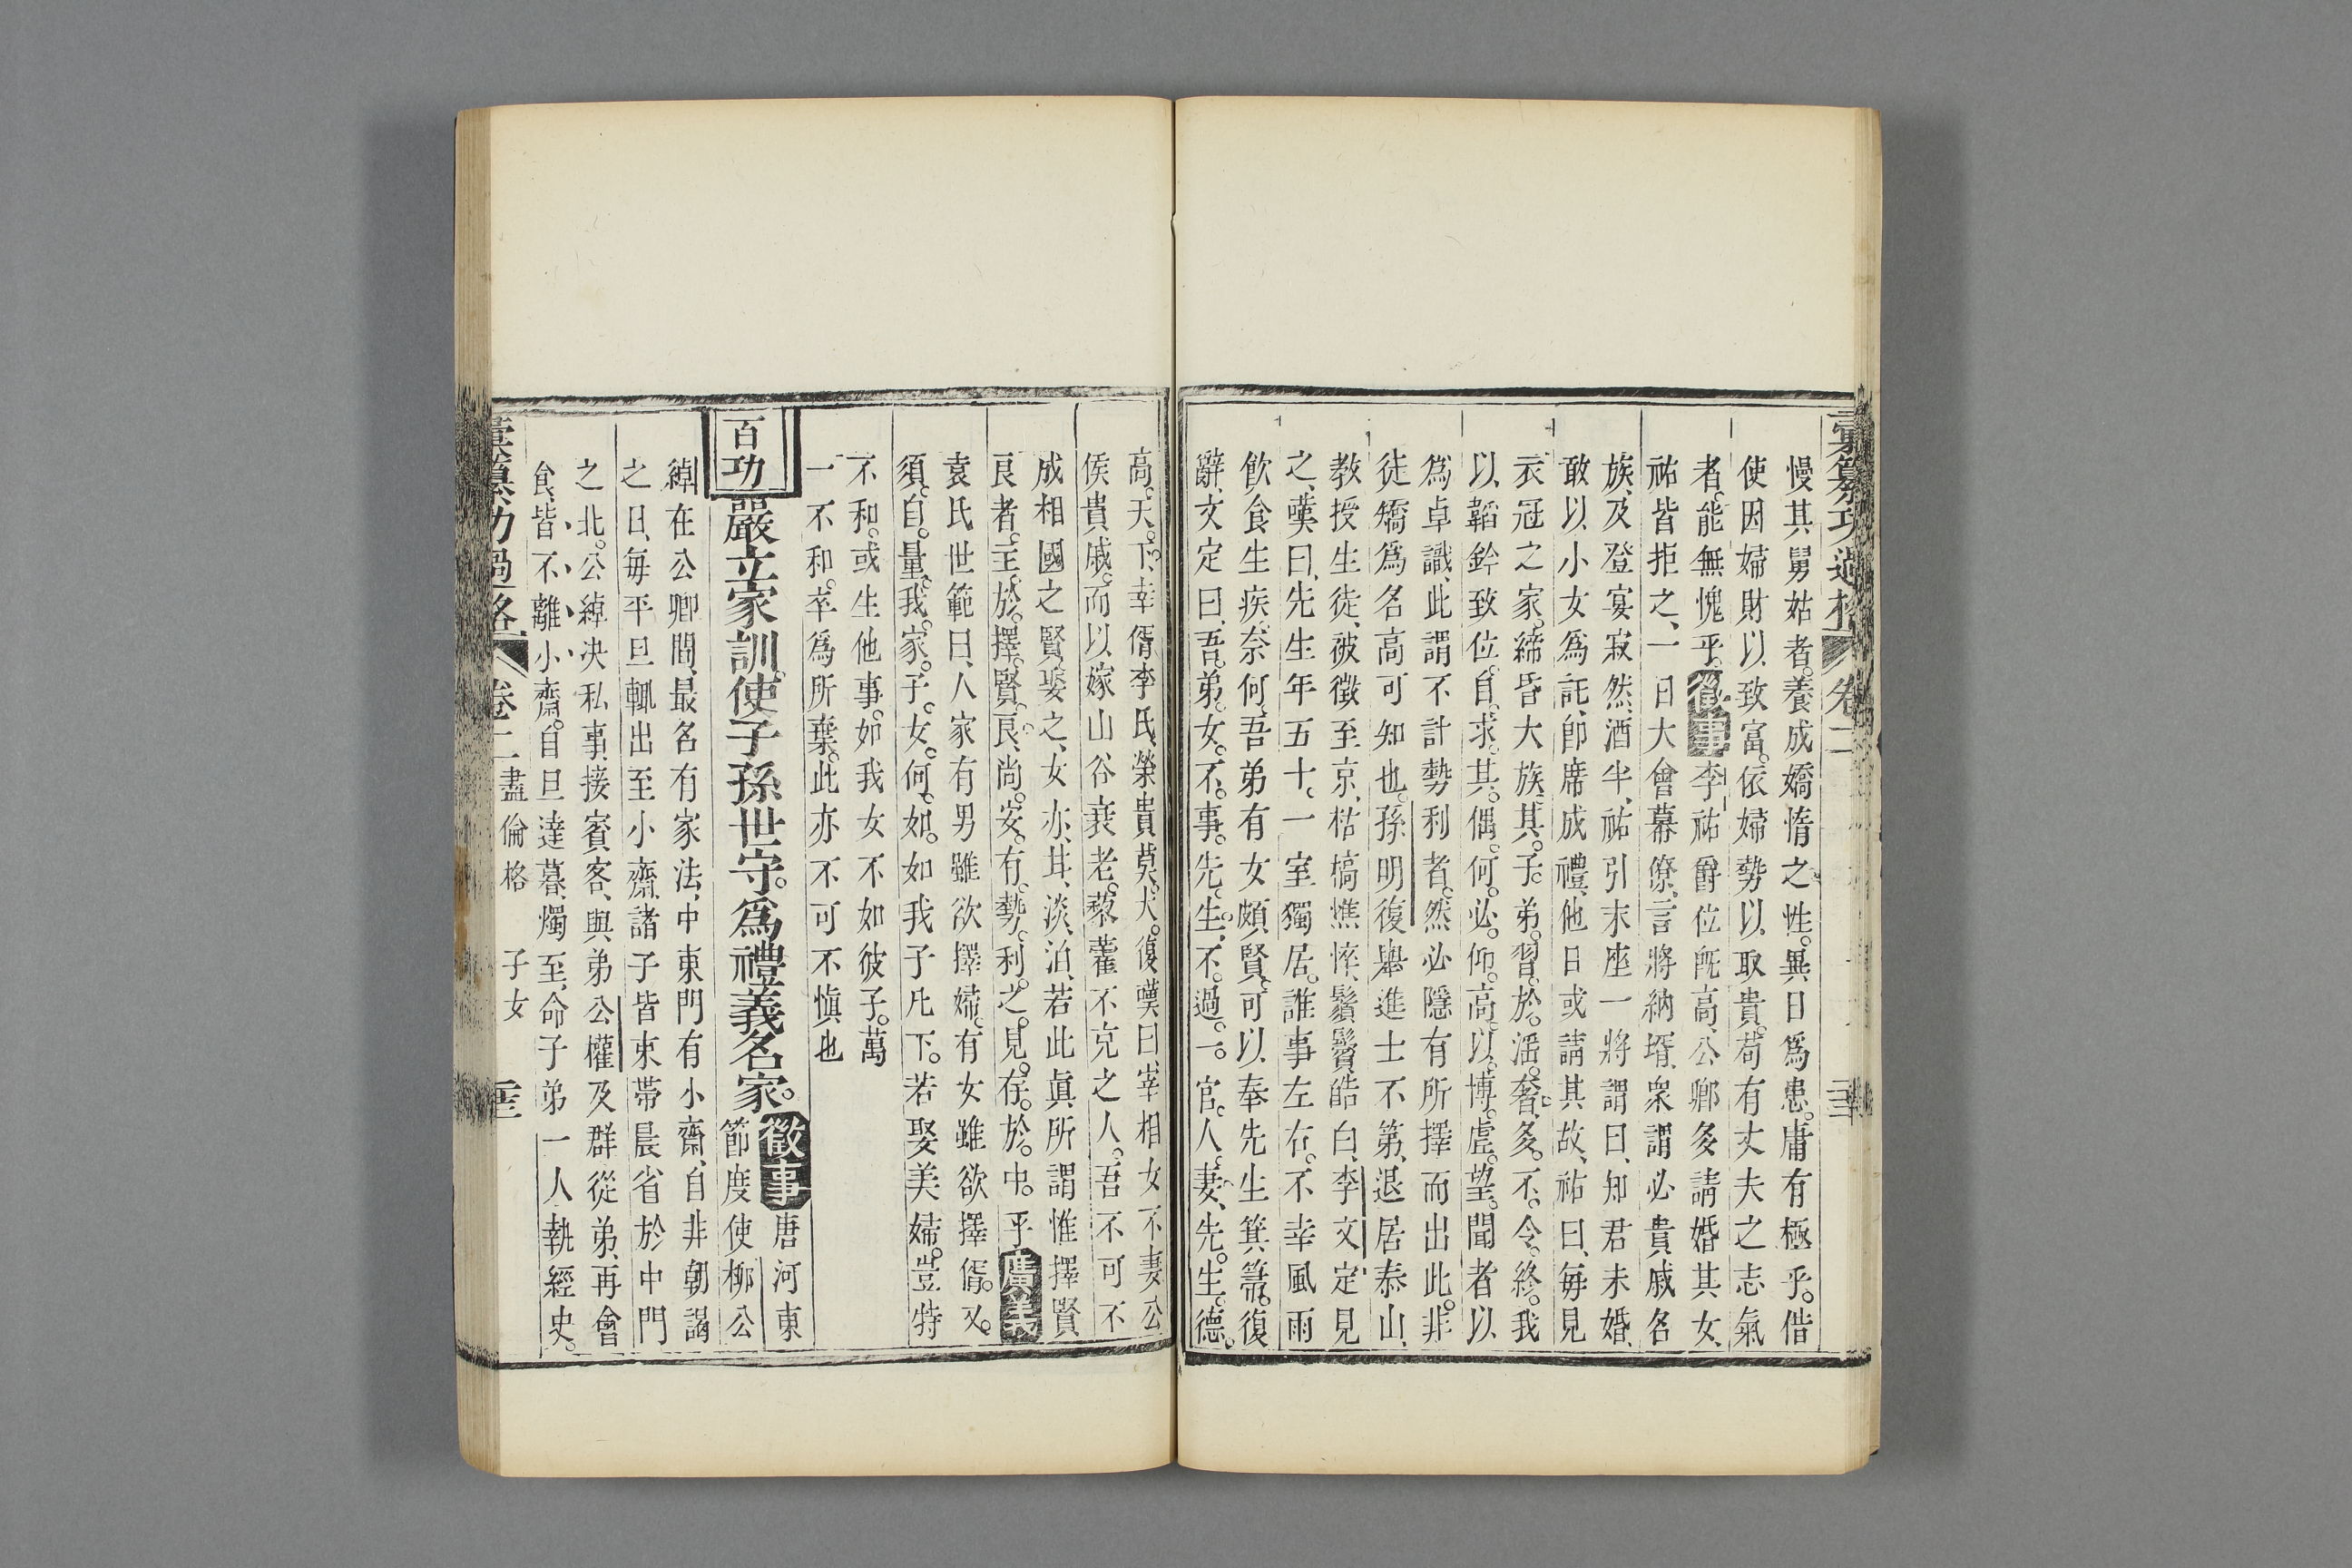 彙纂功過格 卷二
慢其舅姑者。養成嬌惰之性。異日爲患。庸有極乎。借
使因婦財以致富。依婦勢以取貴。苟有丈夫之志氣
者。能無愧乎。徵事李祐爵位旣高、公卿多請婚其女、
祐皆拒之、一日大會幕僚、言將納壻、衆謂必貴戚名
族、及登宴寂然、酒半、祐引末座一將謂曰、知君未婚、
敢以小女爲託、卽席成禮、他日或請其故、祐曰、每見
衣冠之家、締昏大族、其。子。弟。習。於。淫。奢、多。不。令。終。我
以韜鈐致位。自。求。其。偶。何。必。仰。高。以。博。虛。望。聞者以
爲卓識、此謂不計勢利者。然必隱有所擇而出此。非
徒矯爲名高可知也。孫明復舉進士不第、退居泰山、
教授生徒、被徵至京、枯槁憔悴、鬚鬢皓白、李文定見
之、嘆曰、先生年五十。一室獨居。誰事左右。不幸風雨
飲食生疾、奈何、吾弟有女頗賢、可以奉先生箕箒。復
辭、文定曰、吾。弟。女。不。事。先。生。不。過。一。官。人。妻、先。生。德。
高。天。下、幸壻李氏、榮貴莫大。復嘆曰、宰相女不妻公
侯貴戚。而以嫁山谷衰老。藜藿不充之人。吾不可不
成相國之賢、娶之、女亦甘淡泊、若此眞所謂惟擇賢
良者。主。於。擇。賢。良、尚。安。有。勢。利。之。見。存。於。中。乎 廣義
袁氏世範曰、人家有男雖欲擇婦。有女雖欲擇壻。又。
須。自。量。我。家。子。女。何。如。如我子凡下。若娶美婦。豈特
不和。或生他事。如我女不如彼子。萬
一不和。卒爲所棄。此亦不可不愼也
百功 嚴立家訓。使子孫世守。爲禮義名家。徵事 唐河東
節度使柳公
綽在公卿間、最名有家法、中東門有小齋、自非朝謁
之日、每平旦輒出至小齋、諸子皆束帶晨省於中門
之北。公綽決私事、接賓客、與弟公權及群從弟、再會
食、皆不離小齋。自旦達暮、燭至、命子弟一人執經史。
彙纂功過格 卷二 盡倫格 子女